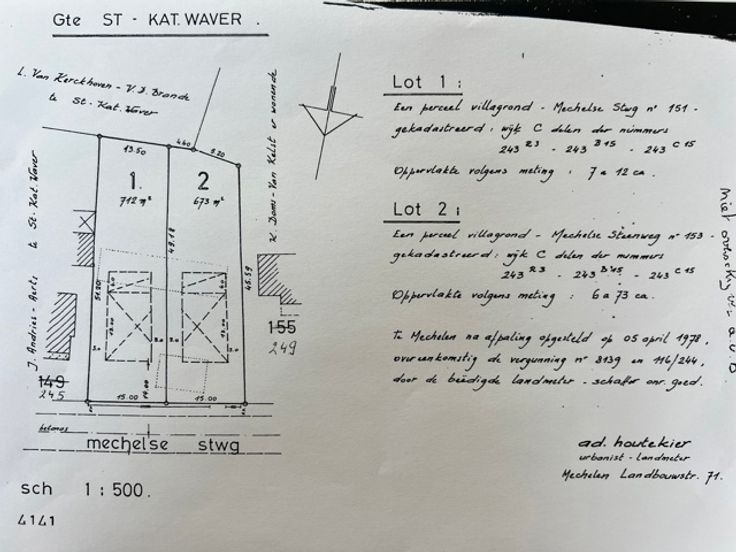 Gte ST - KAT. WAVER .
L. Van Kerckhoven - V.D. Brande
te St. Kat. Waver
J. Andries - Aerts te St. Kat. Waver
K. Doms - Van Kelst er wonende
13.50
4.60
5.20
1.
712 m²
2
673 m²
49.18
51.20
45.59
3.0
3.0
3.0
3.0
14.00
15.00
15.00
149
245
155
249
betonas
mechelse stwg
sch 1 : 500 .
4141
Lot 1 :
Een perceel villagrond - Mechelse Stwg n° 151 -
gekadastreerd : wijk C delen der nummers
243 R3 - 243 B15 - 243 C15
Oppervlakte volgens meting : 7 a 12 ca .
Lot 2 :
Een perceel villagrond - Mechelse Steenweg n° 153 -
gekadastreerd : wijk C delen der nummers
243 R3 - 243 B15 - 243 C15
Oppervlakte volgens meting : 6 a 73 ca .
te Mechelen na afpaling opgesteld op 05 april 1978 ,
overeenkomstig de vergunning n° 8139 en 116/244 ,
door de beëdigde landmeter - schatter onr. goed .
ad. houtekier
urbanist - landmeter
Mechelen Landbouwstr. 71 .
niet